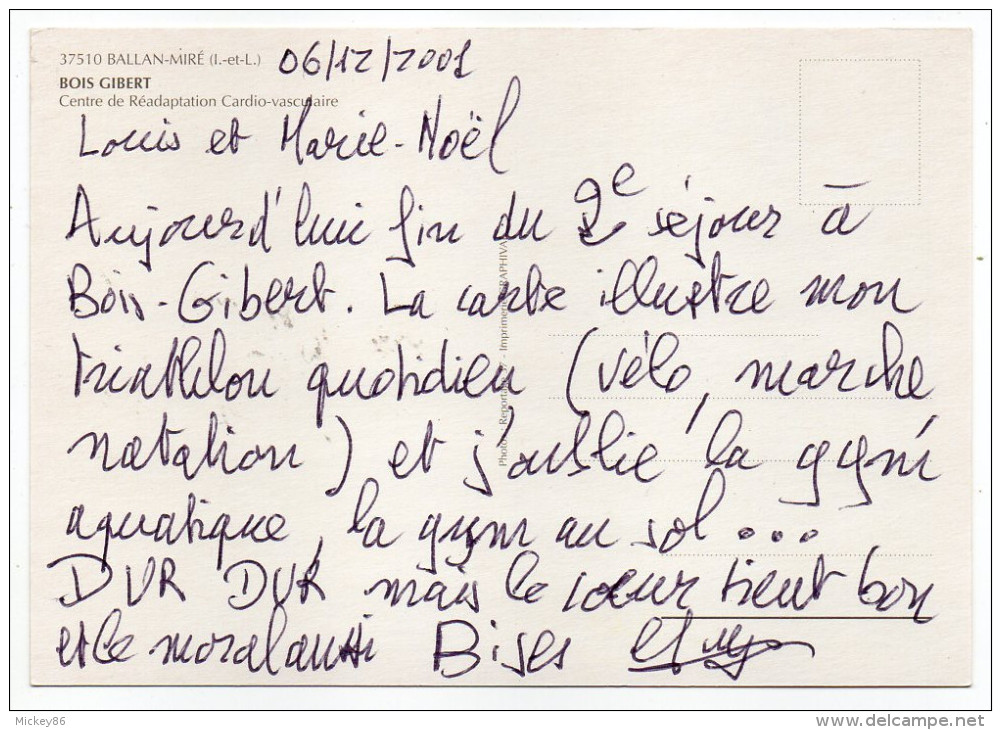 37510 BALLAN-MIRÉ (I.-et-L.) 06/12/2001
BOIS GIBERT
Centre de Réadaptation Cardio-vasculaire
Louis et Marie-Noël
Aujourd'hui fin du 2e séjour à
Bois-Gibert. La carte illustre mon
triathlon quotidien (vélo, marche
natation) et j'oublie la gym
aquatique, la gym au sol...
DUR DUR mais le coeur tient bon
et le moral aussi Bises
Mickey86
www.delcampe.net